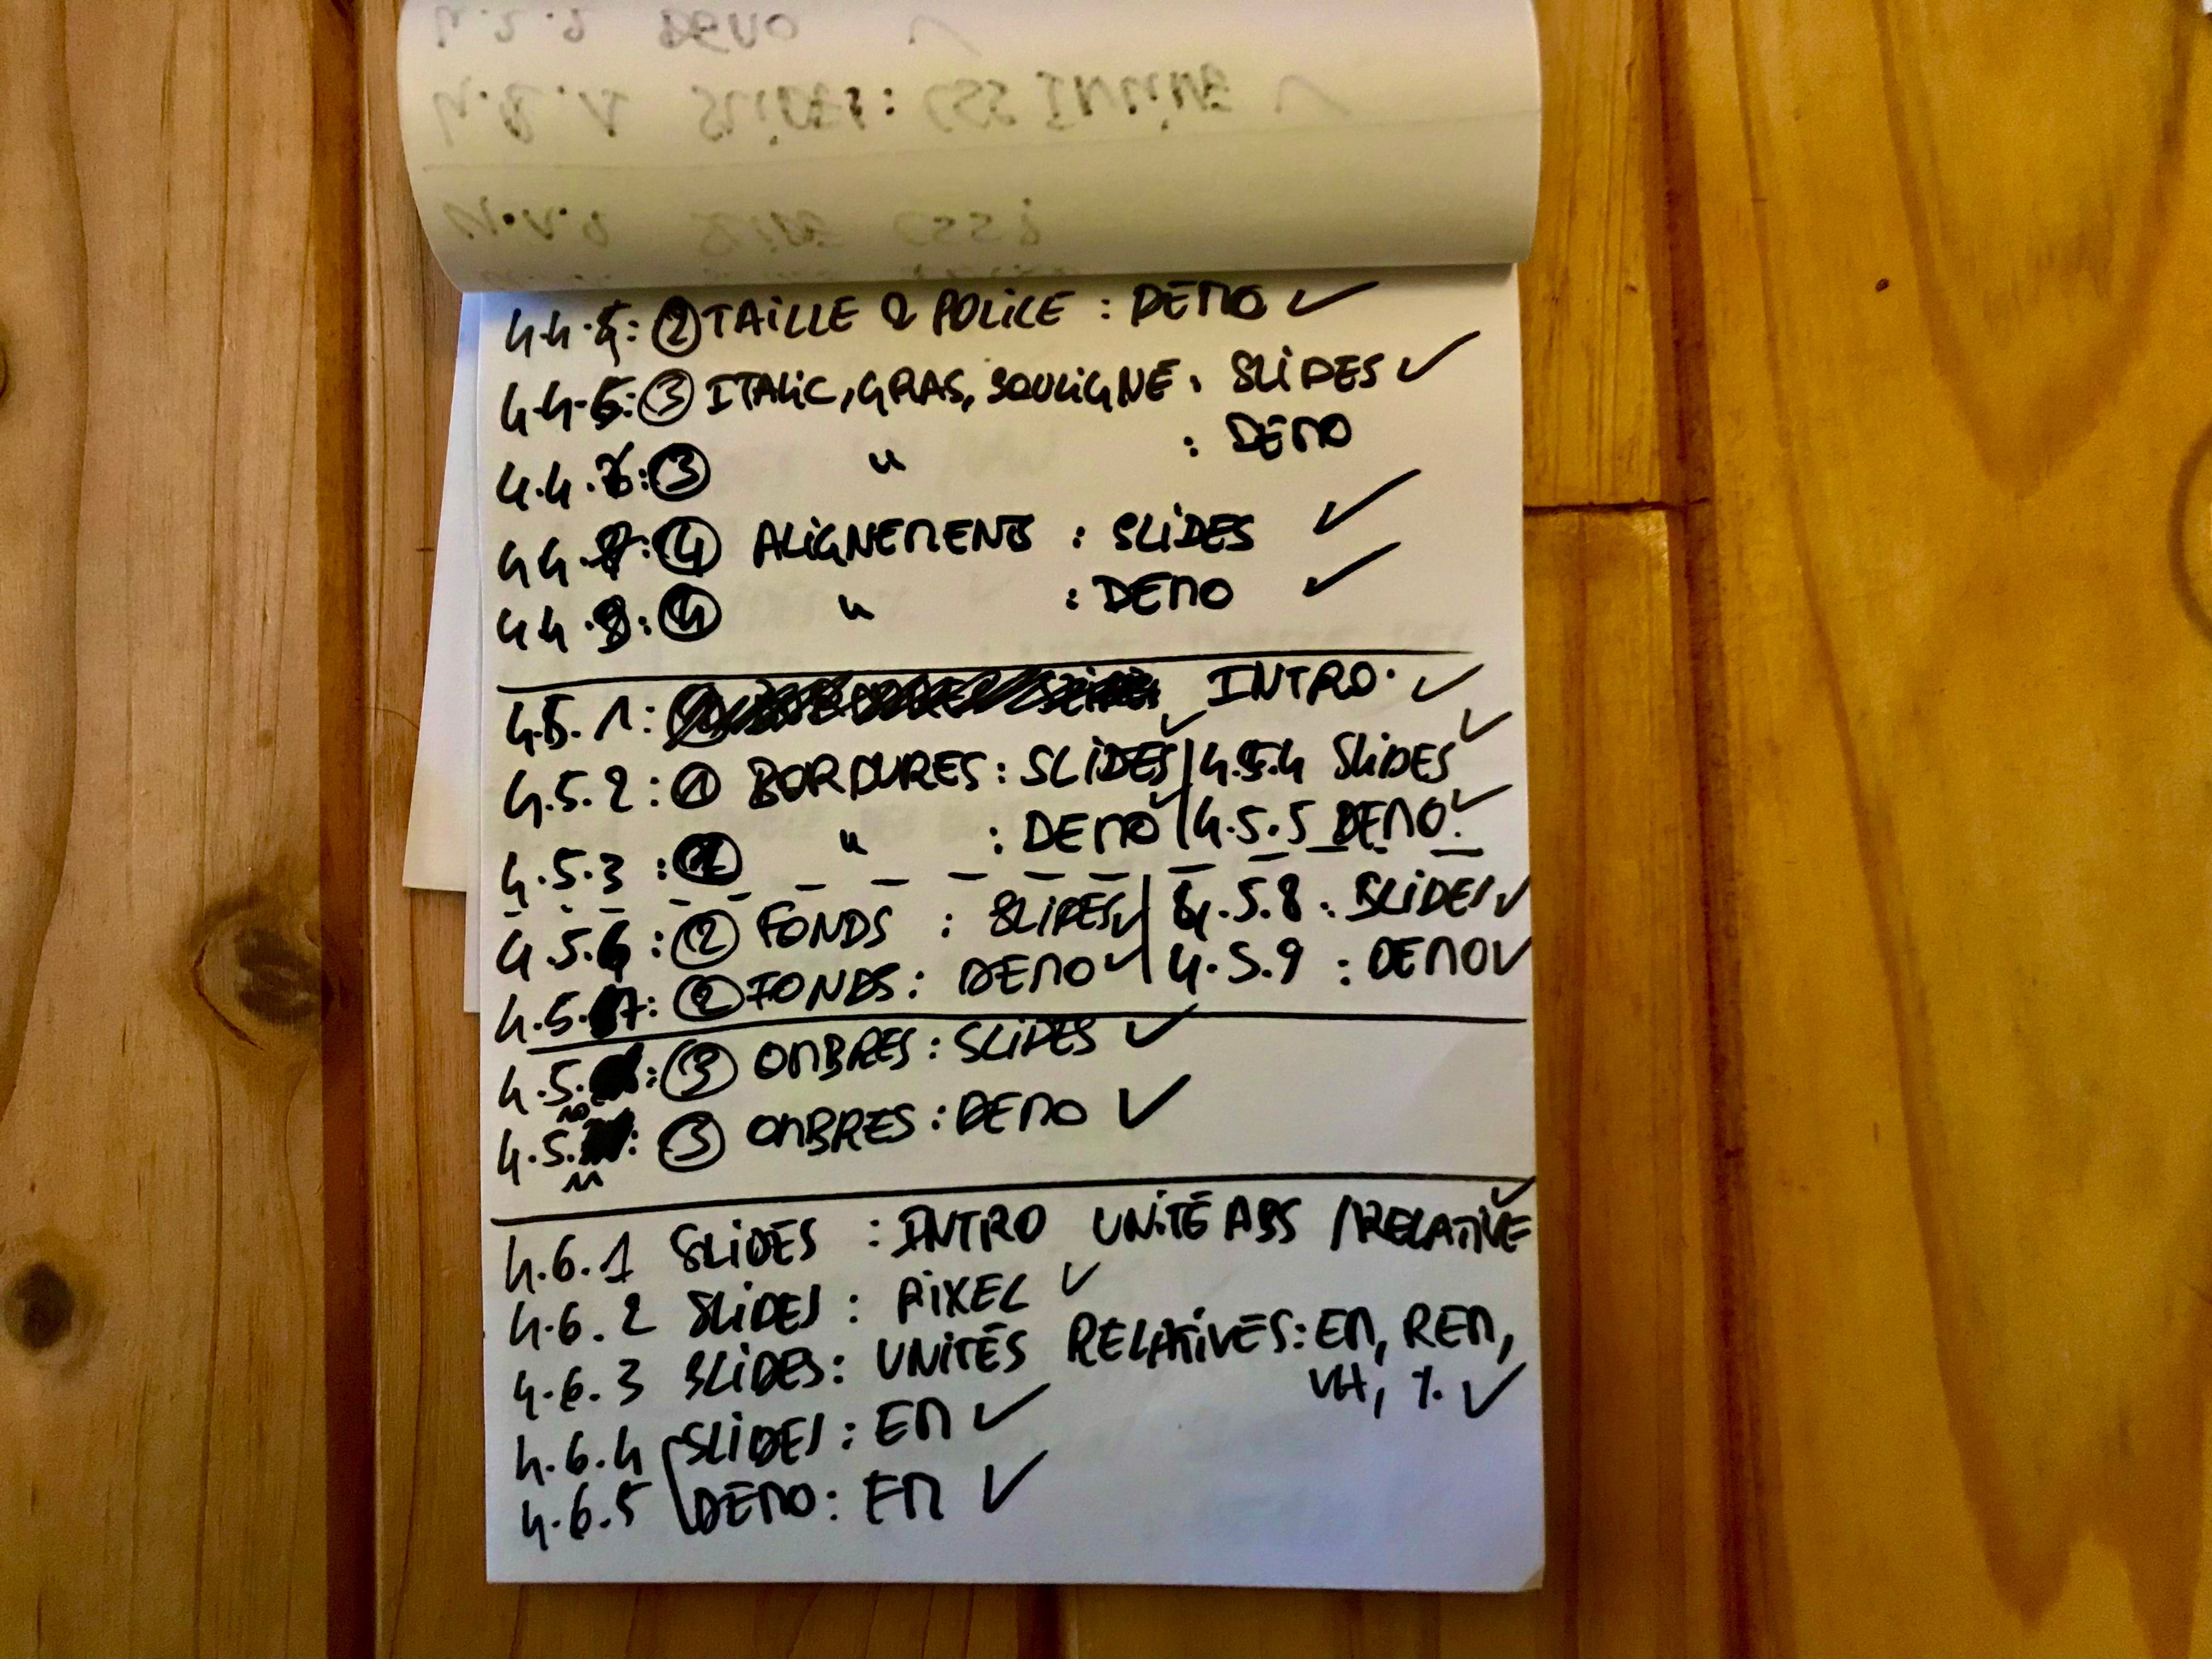 4.2.2 DEMO ✓
4.2.1 SLIDES: CSS INLINE ✓
CSS?
4.4.5: ② TAILLE & POLICE : DEMO ✓
4.4.6: ③ ITALIC, GRAS, SOULIGNE : SLIDES ✓
4.4.7: ③ " : DEMO
4.4.8: ④ ALIGNEMENT : SLIDES ✓
4.4.9: ④ " : DEMO ✓
4.5.1: INTRO. ✓
4.5.2: ① BORDURES: SLIDES ✓ | 4.5.4 SLIDES ✓
4.5.3: ① " : DEMO ✓ | 4.5.5 DEMO ✓
4.5.6: ② FONDS : SLIDES ✓ | 4.5.8: SLIDES ✓
4.5.7: ② FONDS: DEMO ✓ | 4.5.9 : DEMO ✓
4.5.10: ③ OMBRES: SLIDES ✓
4.5.11: ③ OMBRES: DEMO ✓
4.6.1 SLIDES : INTRO UNITÉ ABS /RELATIVE ✓
4.6.2 SLIDES : PIXEL ✓
4.6.3 SLIDES: UNITÉS RELATIVES: EM, REM,
VH, % ✓
4.6.4 SLIDES: EM ✓
4.6.5 DEMO: EM ✓